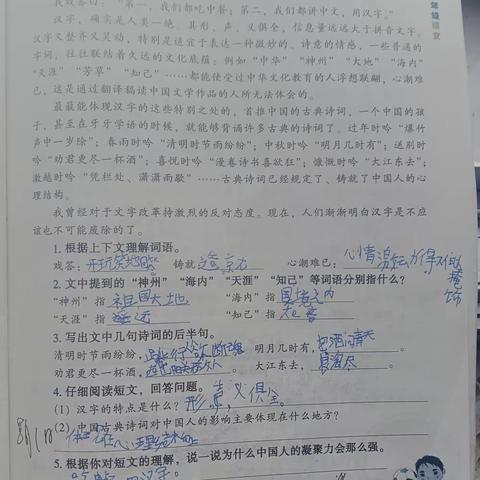 我戏答曰：“第一，我们都吃中餐；第二，我们都讲中文，用汉字。”
汉字，确实是人类一绝。其形、声、义俱全，信息量远远大于拼音文字。
汉字又整齐又灵动，特别是适宜于表达一种微妙的、诗意的情感，一些普通的
字词，往往联结着久远的文化底蕴：例如“中华”“神州”“大地”“海内”
“天涯”“芳草”“知己”……都能使受过中华文化教育的人浮想联翩，心潮难
已，这是通过翻译稿读中国文学作品的人所无法体会的。
最最能体现汉字的这些特别之处的，首推中国的古典诗词，一个中国的孩
子，甚至在牙牙学语的时候，就能够背诵许多古典的诗词了。过年时吟“爆竹
声中一岁除”；春雨时吟“清明时节雨纷纷”；中秋时吟“明月几时有”；送别时
吟“劝君更尽一杯酒”；喜悦时吟“漫卷诗书喜欲狂”；慷慨时吟“大江东去”；
激越时吟“凭栏处、潇潇雨歇”……古典诗词已经规定了、铸就了中国人的心
理结构。
我曾经对于文字改革持激烈的反对态度。现在，人们渐渐明白汉字是不应
该也不可能废除的了。
1. 根据上下文理解词语。
戏答：开玩笑地 铸就 造就 心潮难已： 心情激动得
2. 文中提到的“神州”“海内”“天涯”“知己”等词语分别指什么？
“神州”指 祖国大地 “海内”指 国境之内
“天涯”指 遥远 “知己”指
3. 写出文中几句诗词的后半句。
清明时节雨纷纷，路上行人欲断魂 明月几时有，把酒问青天。
劝君更尽一杯酒， 大江东去， 浪淘尽。
4. 仔细阅读短文，回答问题。
(1) 汉字的特点是什么？ 形 意 义俱全。
(2) 中国古典诗词对中国人的影响主要体现在什么地方？
体现在心理结构上
5. 根据你对短文的理解，说一说为什么中国人的凝聚力会那么强。
汉字。